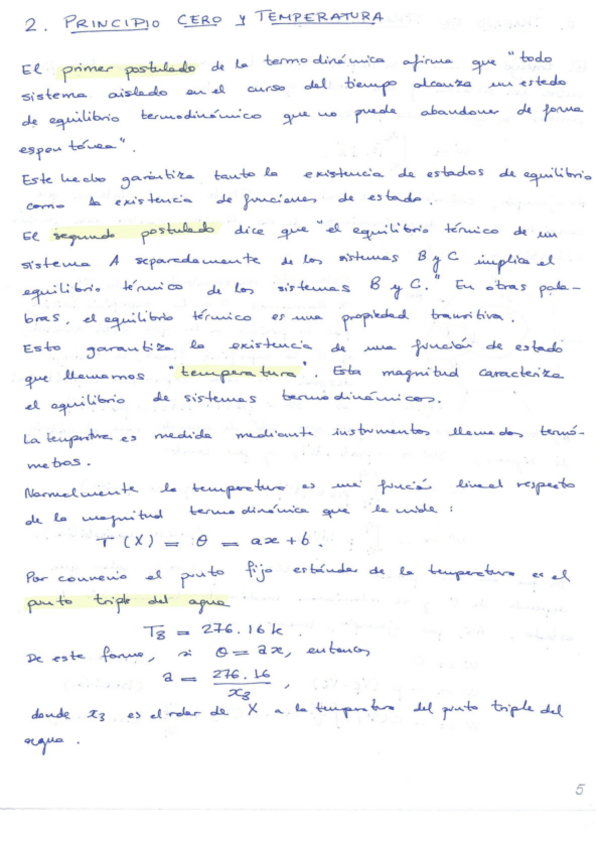 2. PRINCIPIO CERO Y TEMPERATURA
El primer postulado de la termodinámica afirma que "todo
sistema aislado en el curso del tiempo alcanza un estado
de equilibrio termodinámico que no puede abandonar de forma
espontánea".
Este hecho garantiza tanto la existencia de estados de equilibrio
como la existencia de funciones de estado.
El segundo postulado dice que "el equilibrio térmico de un
sistema A separadamente de los sistemas B y C implica el
equilibrio térmico de los sistemas B y C." En otras pala-
bras, el equilibrio térmico es una propiedad transitiva.
Esto garantiza la existencia de una función de estado
que llamamos "temperatura". Esta magnitud caracteriza
el equilibrio de sistemas termodinámicos.
La temperatura es medida mediante instrumentos llamados termó-
metros.
Normalmente la temperatura es una función lineal respecto
de la magnitud termodinámica que la mide:
T (X) = θ = ax + b.
Por convenio el punto fijo estándar de la temperatura es el
punto triple del agua
T3 = 276.16 K.
De esta forma, si θ = ax, entonces
a = 276.16
x3 ,
donde x3 es el valor de X a la temperatura del punto triple del
agua.
5